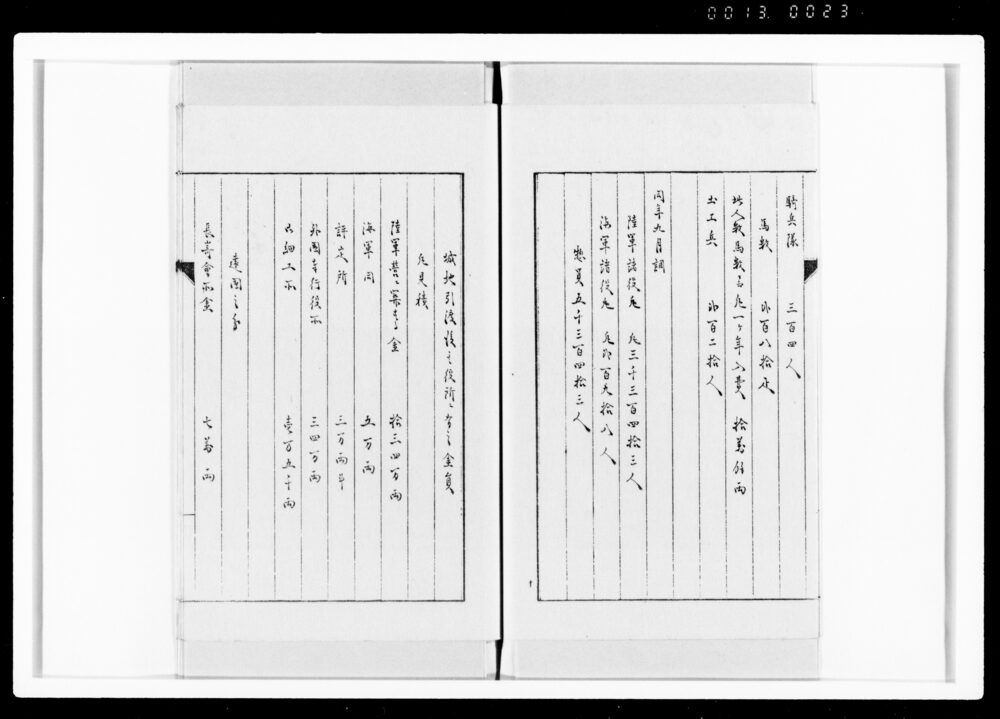 0013 0023
騎兵隊 三百四人
馬数 弐百八拾疋
此人数馬数ニ而凡一ヶ年入費 拾万餘両
土工兵 弐百二拾人
同年九月調
陸軍諸役凡 凡三千三百四拾三人
海軍諸役凡 凡弐百九拾八人
惣員五千三百四拾三人
城地引渡後之役所ニ有之金員
凡見積
陸軍営ニ 金 拾三四万両
海軍同 五万両
評定所 三万両斗
外国奉行役所 三四万両
古細工所 壱万五千両
遠国之分
長崎會所金 七万両